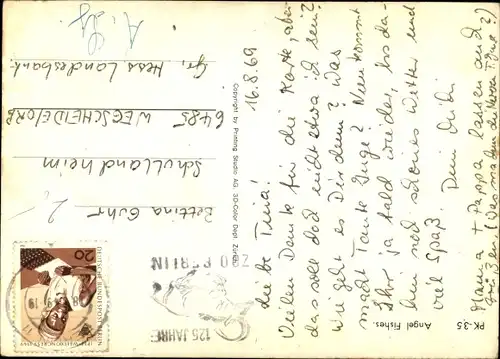 16.8.69
Liebe Tina!
Vielen Dank für die Karte, aber
das solle doch nicht etwa ich sein?
wie geht es Dir denn? Was
macht Tante Inge? Nun kommt
Ihr ja bald wieder, bis da-
hin noch schönes Wetter und
viel Spaß! Dein
+ Pappa lassen auch
grüßen!
Bettina
Schullandheim
6485 WEGSCHEIDE/ORB
Gr. Hess Landesbank.
Copyright by Prostag Studio AG, 3D-Color Dept. Zürich
PK-35
Angel Fishes
DEUTSCHE BUNDESPOST BERLIN
20
125 JAHRE
ZOO BERLIN